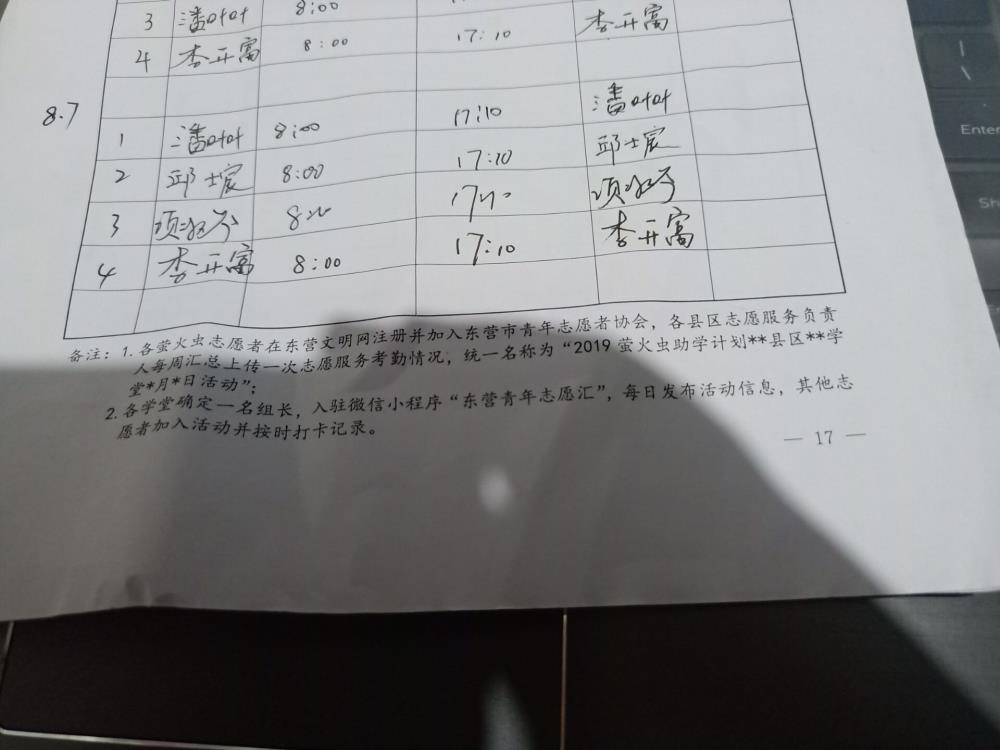 3 潘叶叶 8:00 李开富
4 李开富 8:00 17:10
8.7
1 潘叶叶 8:00 17:10 潘叶叶
2 邱士宸 8:00 17:10 邱士宸
3 8:00 17:10
4 李开富 8:00 17:10 李开富
备注：1.各萤火虫志愿者在东营文明网注册并加入东营市青年志愿者协会，各县区志愿服务负责
人每周汇总上传一次志愿服务考勤情况，统一名称为“2019萤火虫助学计划**县区**学
堂*月*日活动”；
2.各学堂确定一名组长，入驻微信小程序“东营青年志愿汇”，每日发布活动信息，其他志
愿者加入活动并按时打卡记录。
— 17 —
Enter
Sh